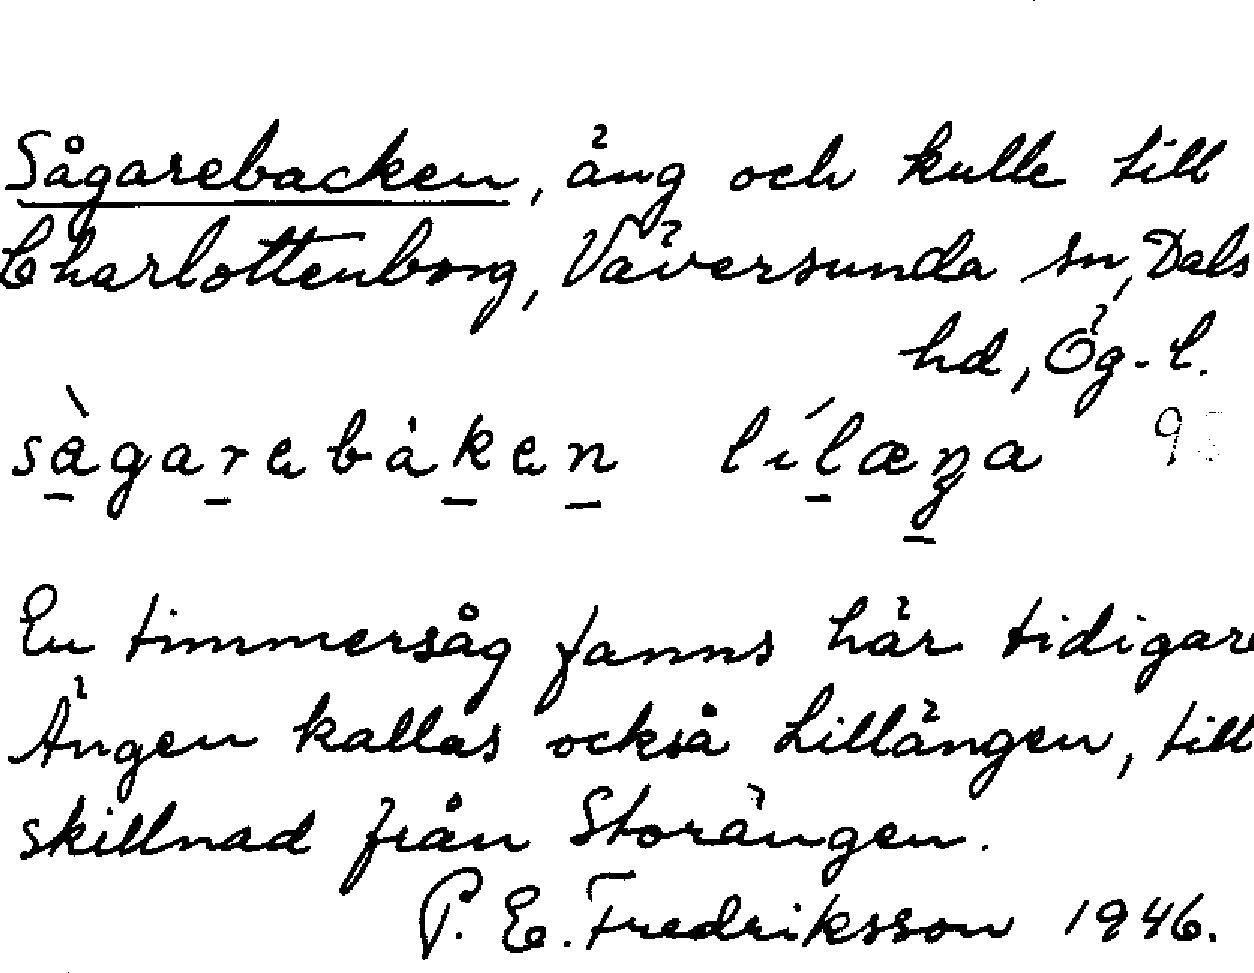 Sågarebacken, äng och kulle till
Charlottenborg, Väversunda sn, Dals
hd, Ög. l.
sàgarebàken lílæŋa
En timmersåg fanns här tidigare
Ängen kallas också Lillängen, till
skillnad från Storängen.
P. E. Fredriksson 1946.